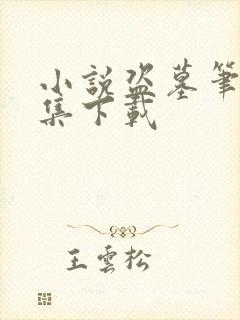 小說盜墓筆
集下載
王雲松